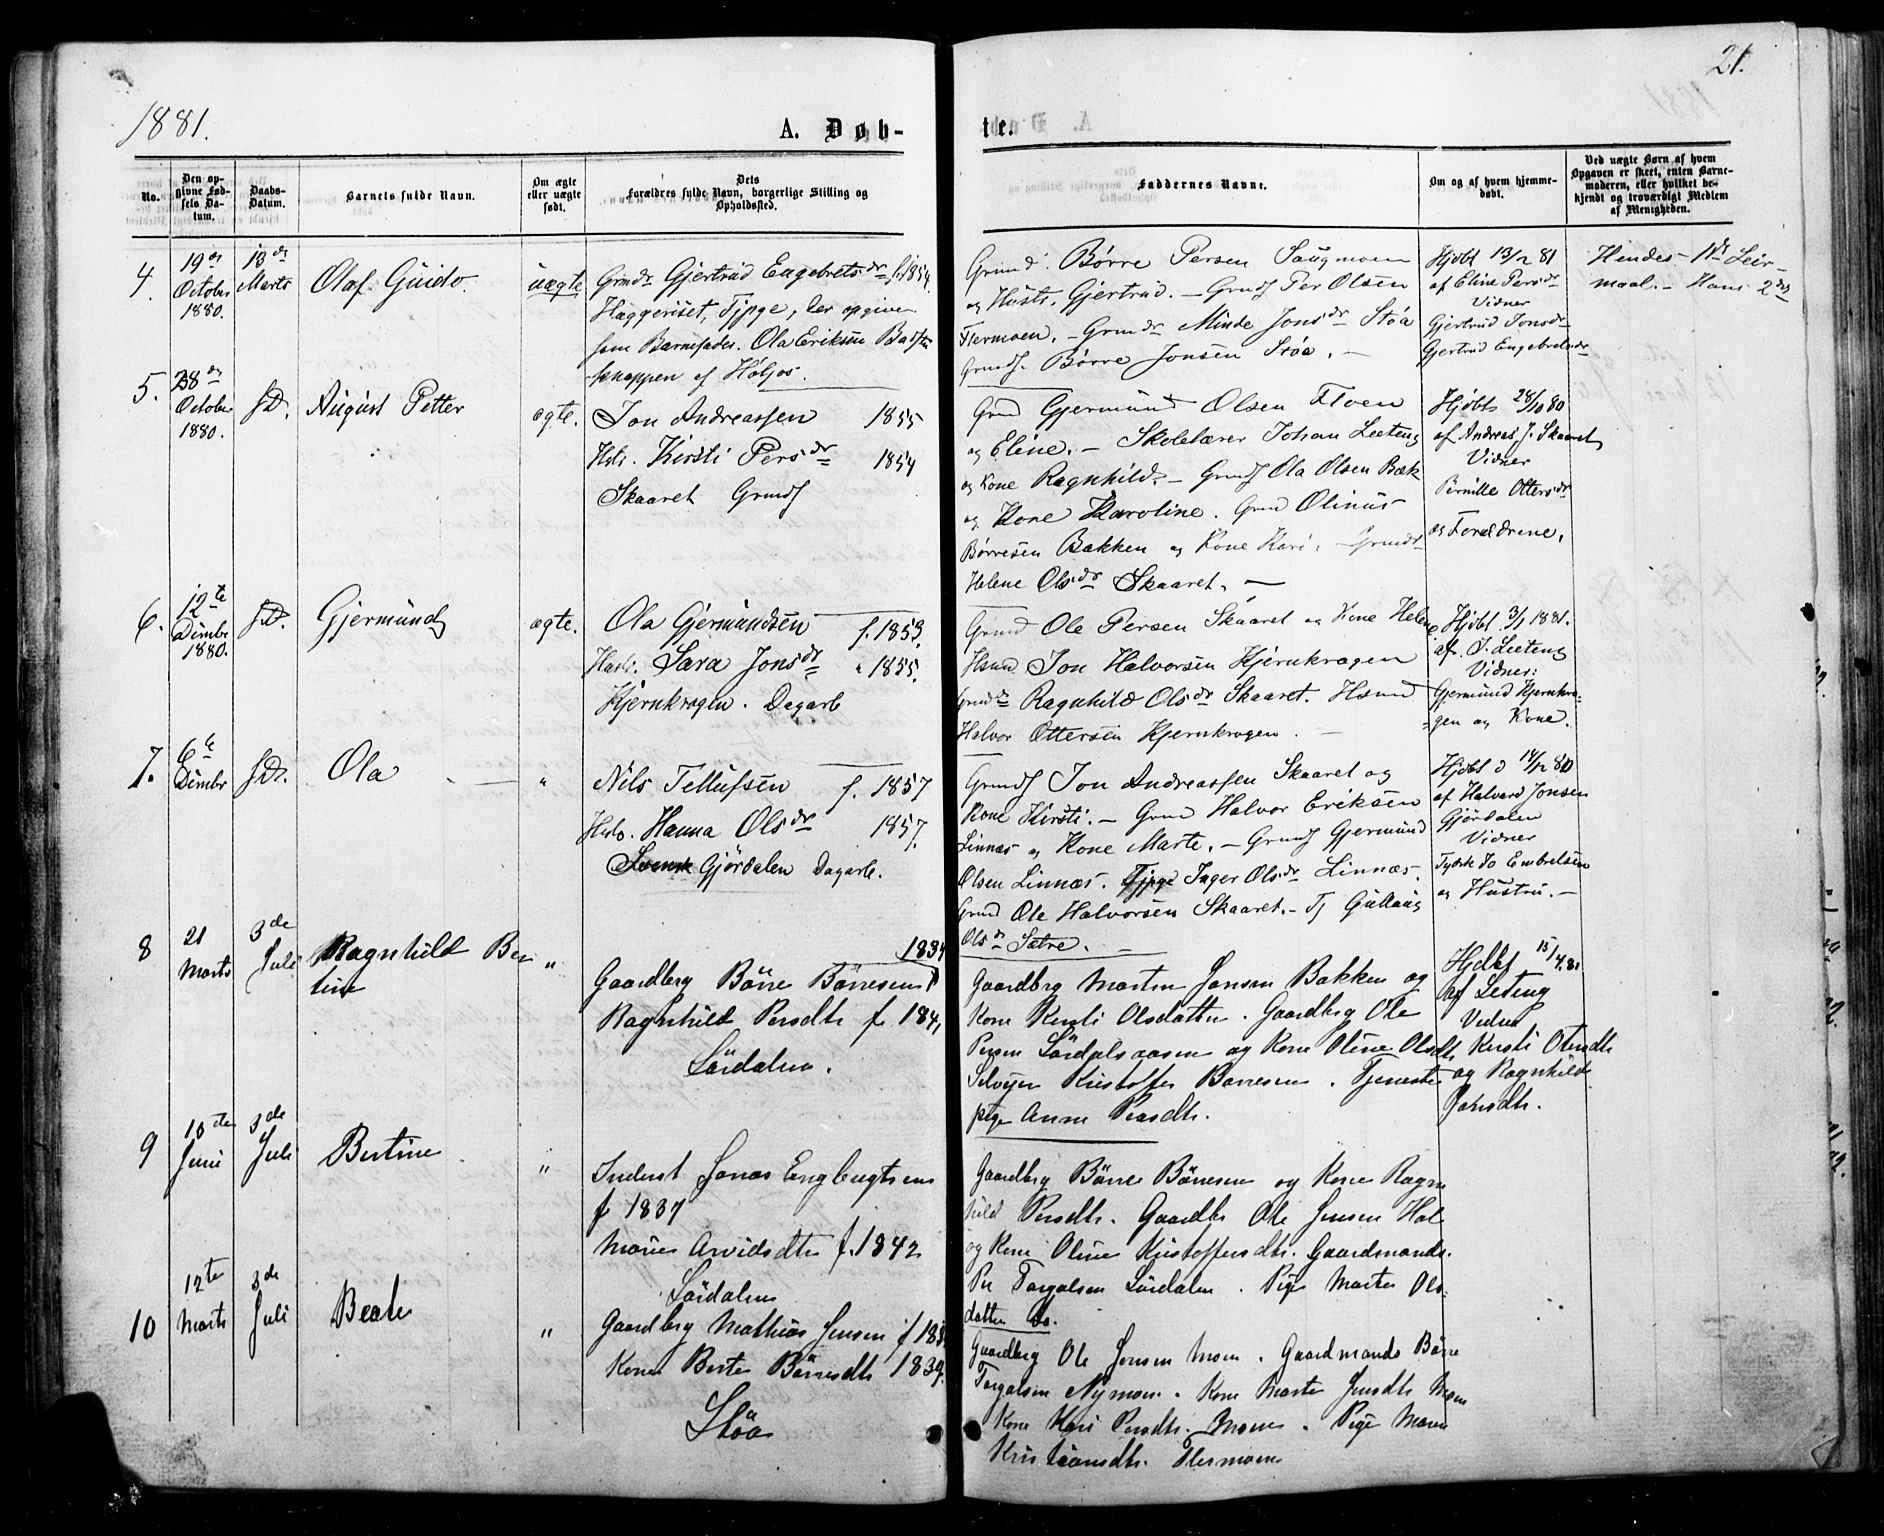 21.
1881.
A. Døb-
te.
No.
Den op-
givne Fød-
sels Da-
tum.
Daabs-
Datum.
Barnets fulde Navn.
Om ægte
eller uægte
født.
Dets
Forældres fulde Navn, borgerlige Stilling og
Opholdssted.
Faddernes Navne.
Om og af hvem hjemme-
døbt.
Ved uægte Børn af hvem
Opgaven er skeet, enten Barne-
moderen, eller hvilket be-
kjendt og troværdigt Medlem
af Menigheden.
4.
19de
October
1880.
13de
Marts
Olaf Guido.
uægte
Grmdr Gjertrud Engebretsdr f. 1854.
Haggeriset, Tjpge, der opgiver
som Barnefader. Ola Eriksen
knappen af Höljos.
Grmd. Börre Persen Saugmoen
og Hustr. Gjertrud. - Grmdf Per Olsen
Flermoen. - Grmdr Minde Jonsdr Støa
Grmdf. Börre Jonsen Støa. -
Hjdbt 13/2 81
af Eline Persdr
Vidner
Gjertrud Jonsdr
Gjertrud Engebretsdr
Hendes 1ste Leir-
maal. - Hans 2det
5.
28de
October
1880.
fD.
August Petter
ægte.
Jon Andreassen 1855
Hstr. Kirsti Persdr 1854
Skaaret Grmdf
Grmd Gjermund Olsen Floen
og Eline. - Skolelærer Johan Leeteng
og Kone Ragnhild. - Grmdf Ola Olsen Bæk
og Kone Karoline. Grmd Olinus
Börresen Bakken og Kone Kari. - Grmdr
Helene Olsdr Skaaret. -
Hjdbt 28/10 80
af Andreas J. Skaaret
Vidner
Pernille Ottersdr
og Forældrene.
6.
12te
Dcmbr
1880.
fD.
Gjermund
ægte.
Ola Gjermundsen f. 1853.
Hstr. Sara Jonsdr " 1855.
Kjernkrogen. Dagarb
Grmd Ole Persen Skaaret og Kone Helene
Hsmd Jon Halvorsen Kjernkrogen
Grmdr Ragnhild Olsdr Skaaret. Hsmd
Halvor Ottersen Kjernkrogen. -
Hjdbt 3/1 1881.
af J. Leeteng
Vidner:
Gjermund Kjernkro-
gen og Kone.
7.
6te
Dcmbr
fD.
Ola
"
Nils Tellufsen f. 1857
Hstr. Hanna Olsdr 1857.
Gjördalen Dagarb.
Grmdf Jon Andreassen Skaaret og
Kone Kirsti. - Grmd Halvor Eriksen
Linnæs og Kone Marte. - Grmdf Gjermund
Olsen Linnæs. Tjpge Inger Olsdr Linnæs.
Grmd Ole Halvorsen Skaaret. - Tj Gullaug
Olsdr Sætre. -
Hjdbt d 14/12 80
af Halvard Jonsen
Gjördalen
Vidner
Jo Embretsen
og Hustru. -
8
21
Marts
3de
Juli
Ragnhild Ber
tine
"
1834
Gaardbrg Börre Börresen f
Ragnhild Persdtr f 1841
Lördalen.
Gaardbrg Morten Jonsen Bakken og
Kone Kirsti Olsdatter. Gaardbrg Ole
Persen Lördalsaasen og Kone Oline Olsdtr
Selveier Kristoffer Börresen. Tjeneste
pige Anne Persdtr.
Hjdbt 15/4 81
af Leteng
Vidner
Kirsti Olsdtr
og Ragnhild
Jonsdtr.
9
10de
Juni
3de
Juli
Bertine
"
Inderst Jonas Englbregtsen
f 1837
Marie Arvidsdtr f. 1842
Lördalen
Gaardbrg Börre Börresen og Kone Ragn
hild Persdtr. Gaardbr Ole Jensen Hol
og Kone Oline Kristoffersdtr. Gaardmands.
Per Torgalsen Lördalen. Pige Marte Ols-
datter do.
10
12te
Marts
3de
Juli
Beate
"
Gaardbrg Mathias Jensen f
Kone Berte Börresdtr 1839.
Stöa
Gaardbrg Ole Jonsen Moen. Gaardmands Börre
Torgalsen Nymoen. Kone Marte Jensdtr Moen
Kone Kari Persdtr. Moen. Pige Maren
Kristiansdtr. Flermoen